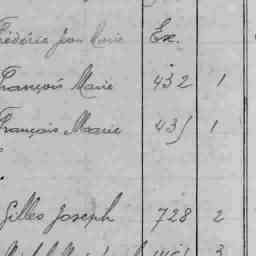 Frédéric Jean Marie Ex.
François Marie 432 1
François Marie 435 1
Gilles Joseph 728 2
3